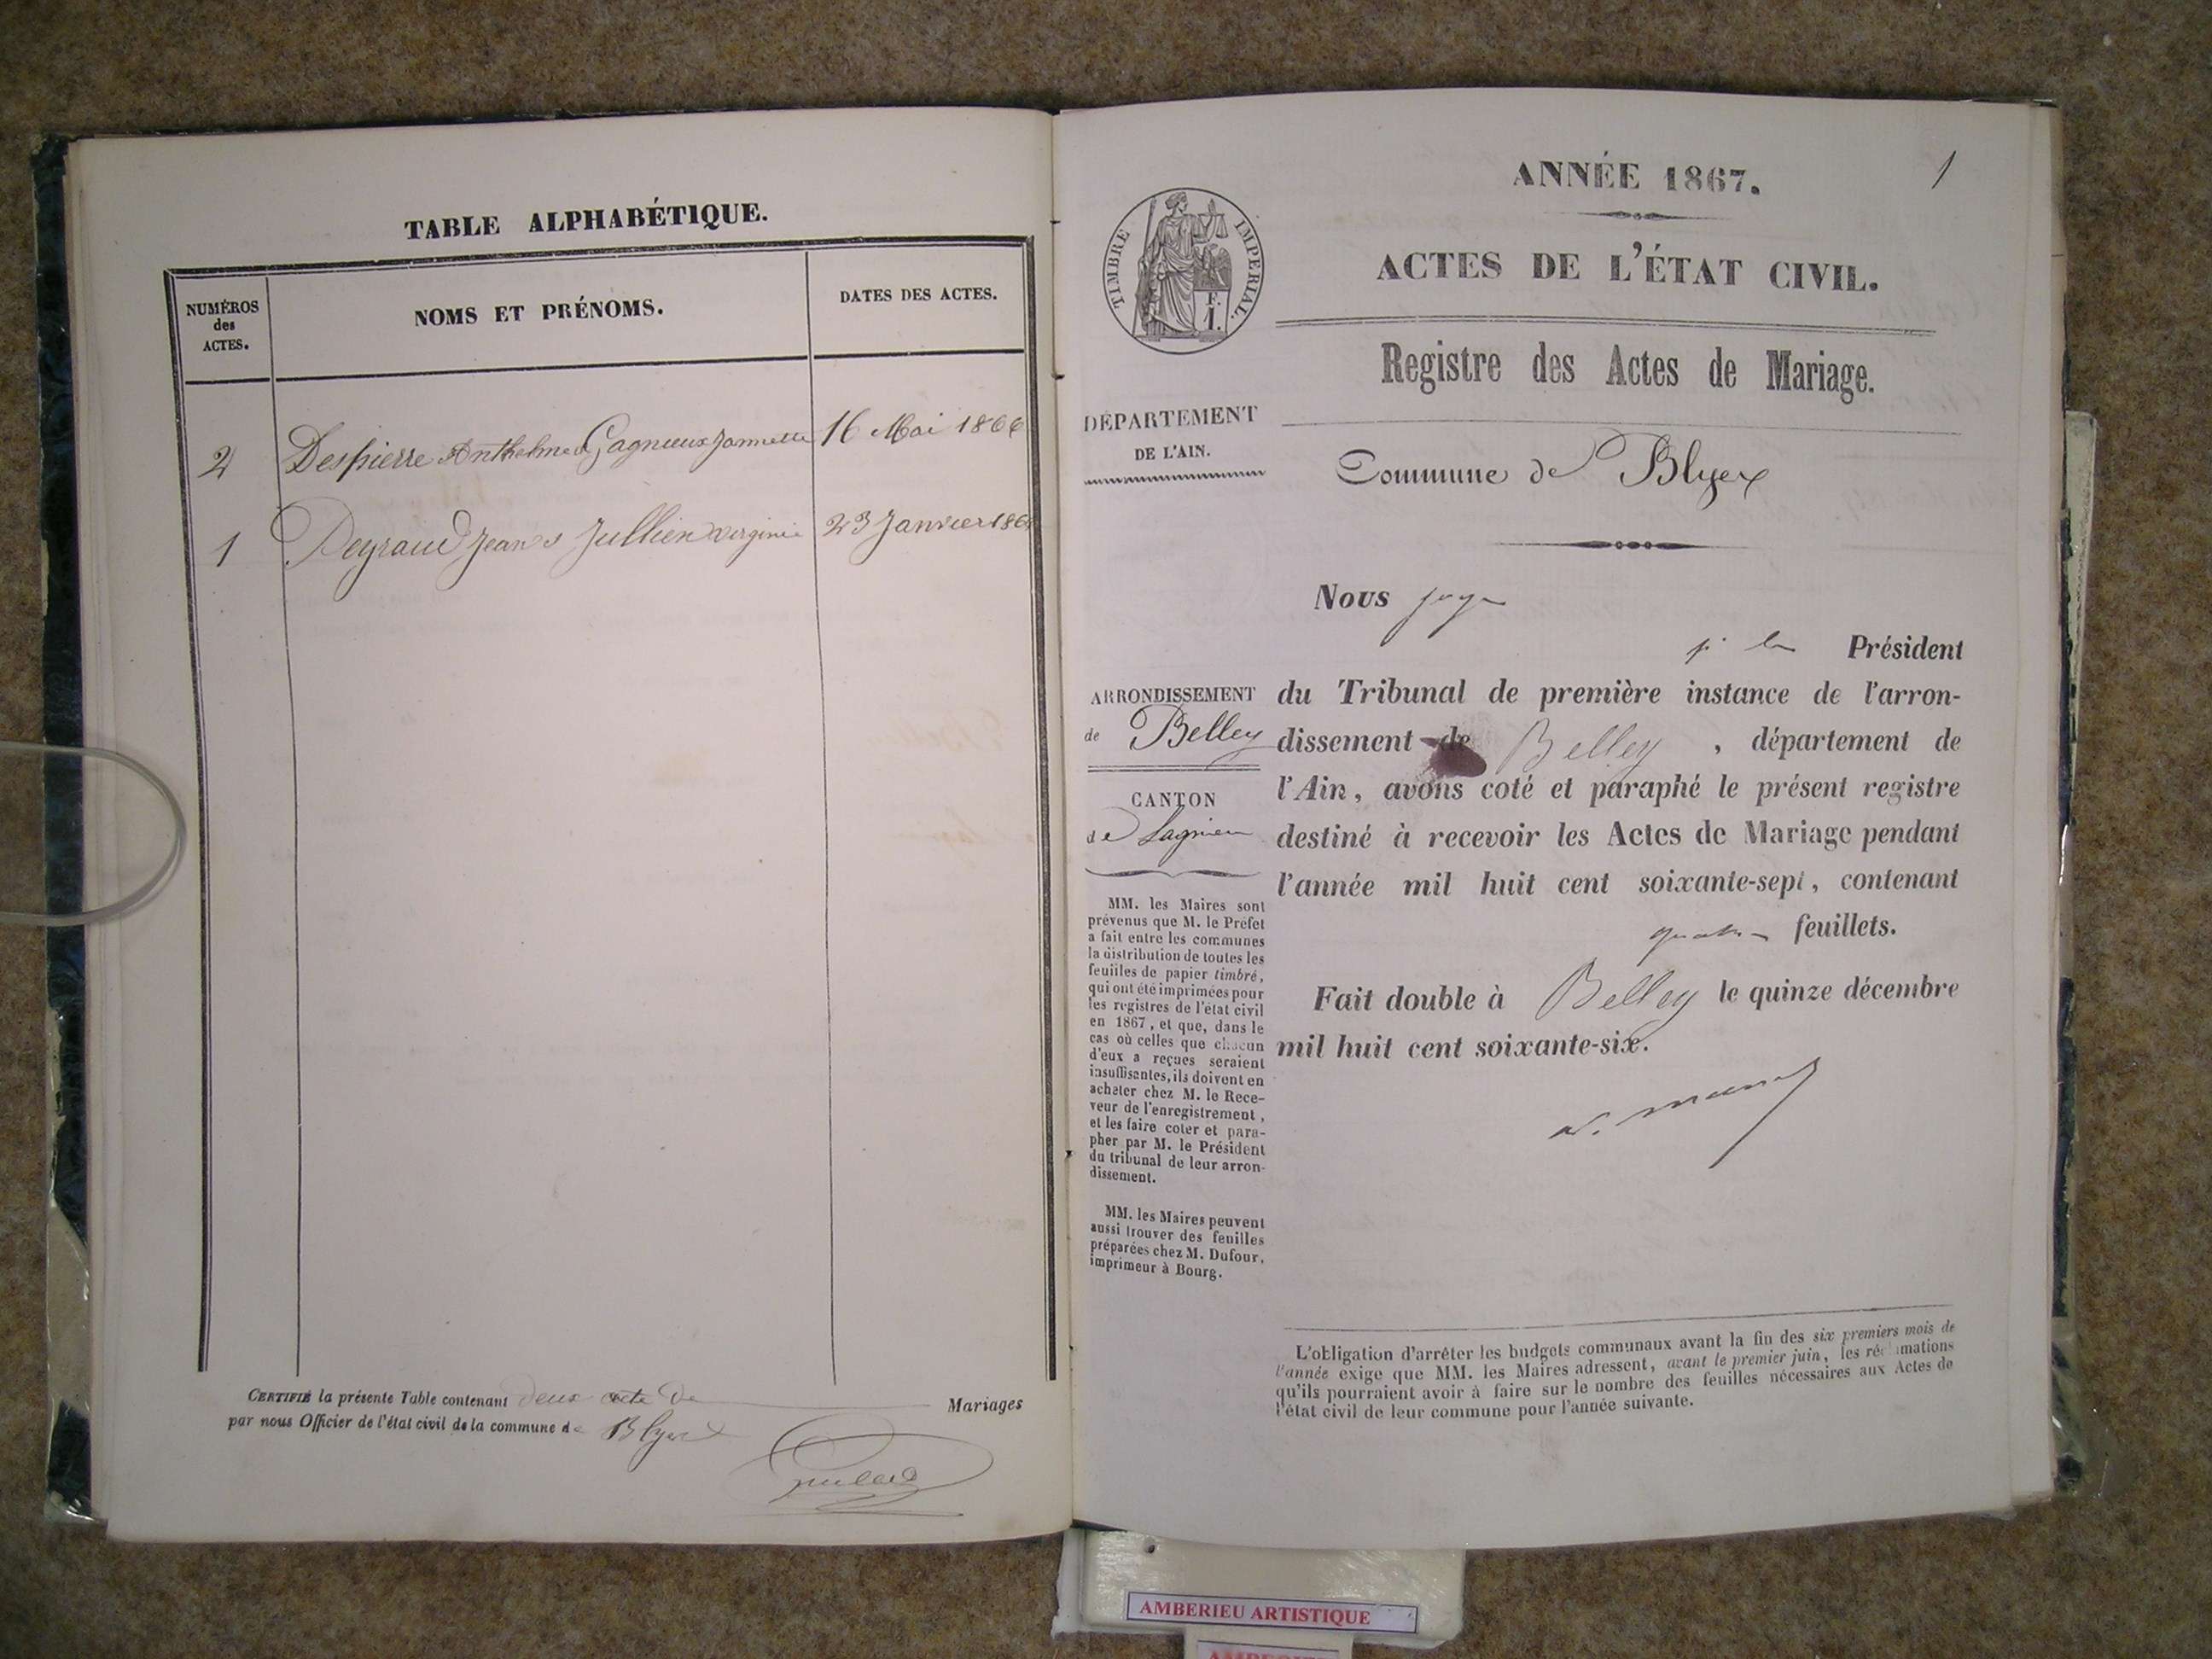 TABLE ALPHABÉTIQUE.
NUMÉROS
des
ACTES.
NOMS ET PRÉNOMS.
DATES DES ACTES.
2 Despierre Anthelme & Gagneux Jannette 16 Mai 1866
1 Peyraud Jean & Jullien virginie 23 Janvier 186
CERTIFIÉ la présente Table contenant deux acte de Mariages
par nous Officier de l'état civil de la commune de Blyes
1
ANNÉE 1867.
TIMBRE IMPERIAL.
F.
1.
ACTES DE L'ÉTAT CIVIL.
Registre des Actes de Mariage.
DÉPARTEMENT
DE L'AIN.
Commune de Blyes
ARRONDISSEMENT
de Belley
CANTON
de Lagnieu
MM. les Maires sont
prévenus que M. le Préfet
a fait entre les communes
la distribution de toutes les
feuilles de papier timbré,
qui ont été imprimées pour
les registres de l'état civil
en 1867, et que, dans le
cas où celles que chacun
d'eux a reçues seraient
insuffisantes, ils doivent en
acheter chez M. le Rece-
veur de l'enregistrement,
et les faire coter et para-
pher par M. le Président
du tribunal de leur arron-
dissement.
MM. les Maires peuvent
aussi trouver des feuilles
préparées chez M. Dufour,
imprimeur à Bourg.
Nous juge
Président
du Tribunal de première instance de l'arron-
dissement de Belley, département de
l'Ain, avons coté et paraphé le présent registre
destiné à recevoir les Actes de Mariage pendant
l'année mil huit cent soixante-sept, contenant
quatre feuillets.
Fait double à Belley le quinze décembre
mil huit cent soixante-six.
L'obligation d'arrêter les budgets communaux avant la fin des six premiers mois de
l'année exige que MM. les Maires adressent, avant le premier juin, les réclamations
qu'ils pourraient avoir à faire sur le nombre des feuilles nécessaires aux Actes de
l'état civil de leur commune pour l'année suivante.
AMBERIEU ARTISTIQUE